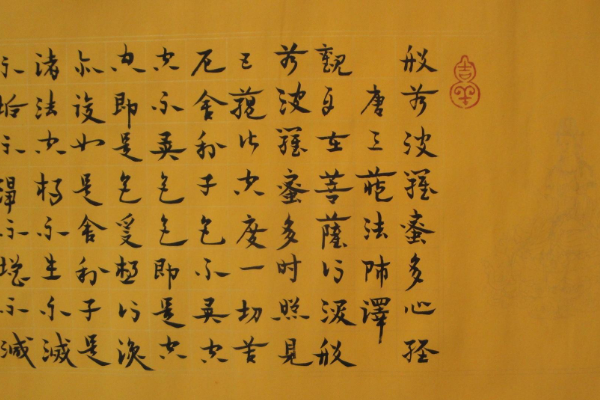 吉羊
般若波羅蜜多心經
唐三藏法師譯
觀自在菩薩行深般
若波羅蜜多时照見
五蘊皆空度一切苦
厄舍利子色不異空
空不異色色即是空
空即是色受想行識
亦復如是舍利子是
諸法空相不生不滅
不垢不淨不增不減